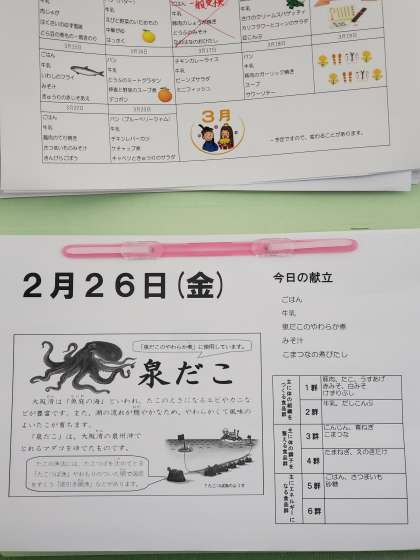 ごはん
牛乳
肉じゃが
パン
牛乳
えびと野菜のいためもの
中華サラダ
はっさく
ごはん
牛乳
豚肉のしょうが焼き
牛乳
カリフラワーとコーンのサラダ
3月15日
ごはん
牛乳
いわしのフライ
みそ汁
きゅうりのあしそあえ
3月16日
パン
牛乳
とうふのミートグラタン
野菜のスープ煮
デコポン
3月17日
チキンカレーライス
牛乳
ビーンズサラダ
ミニフィッシュ
3月18日
パン
牛乳
豚肉のガーリック焼き
スープ
サワーソテー
3月19日
3月22日
ごはん
牛乳
鶏肉のてり焼き
さつまいものみそ汁
きんぴらごぼう
3月23日
パン（ブルーベリージャム）
牛乳
チキンレバーカツ
ケチャップ煮
キャベツときゅうりのサラダ
3月
予定ですので、変わることがあります。
2月26日(金)
今日の献立
ごはん
牛乳
泉だこのやわらか煮
みそ汁
こまつなの煮びたし
「泉だこのやわらか煮」に使用しています。
泉だこ
大阪湾は「魚庭の海」といわれ、たこのえさになるエビやカニな
どが豊富です。また、潮の流れが穏やかなため、やわらかくて風味の
よいたこが育ちます。
「泉だこ」は、大阪湾の泉州沖で
とれるマダコをゆでたものです。
主に体の組織をつくる食品群
1群
豚肉、たこ、うすあげ
赤みそ、白みそ
けずりぶし
2群
牛乳、だしこんぶ
主に体の調子を整える食品群
3群
にんじん、青ねぎ
こまつな
4群
たまねぎ、えのきだけ
主にエネルギーになる食品群
5群
ごはん、さつまいも
砂糖
6群